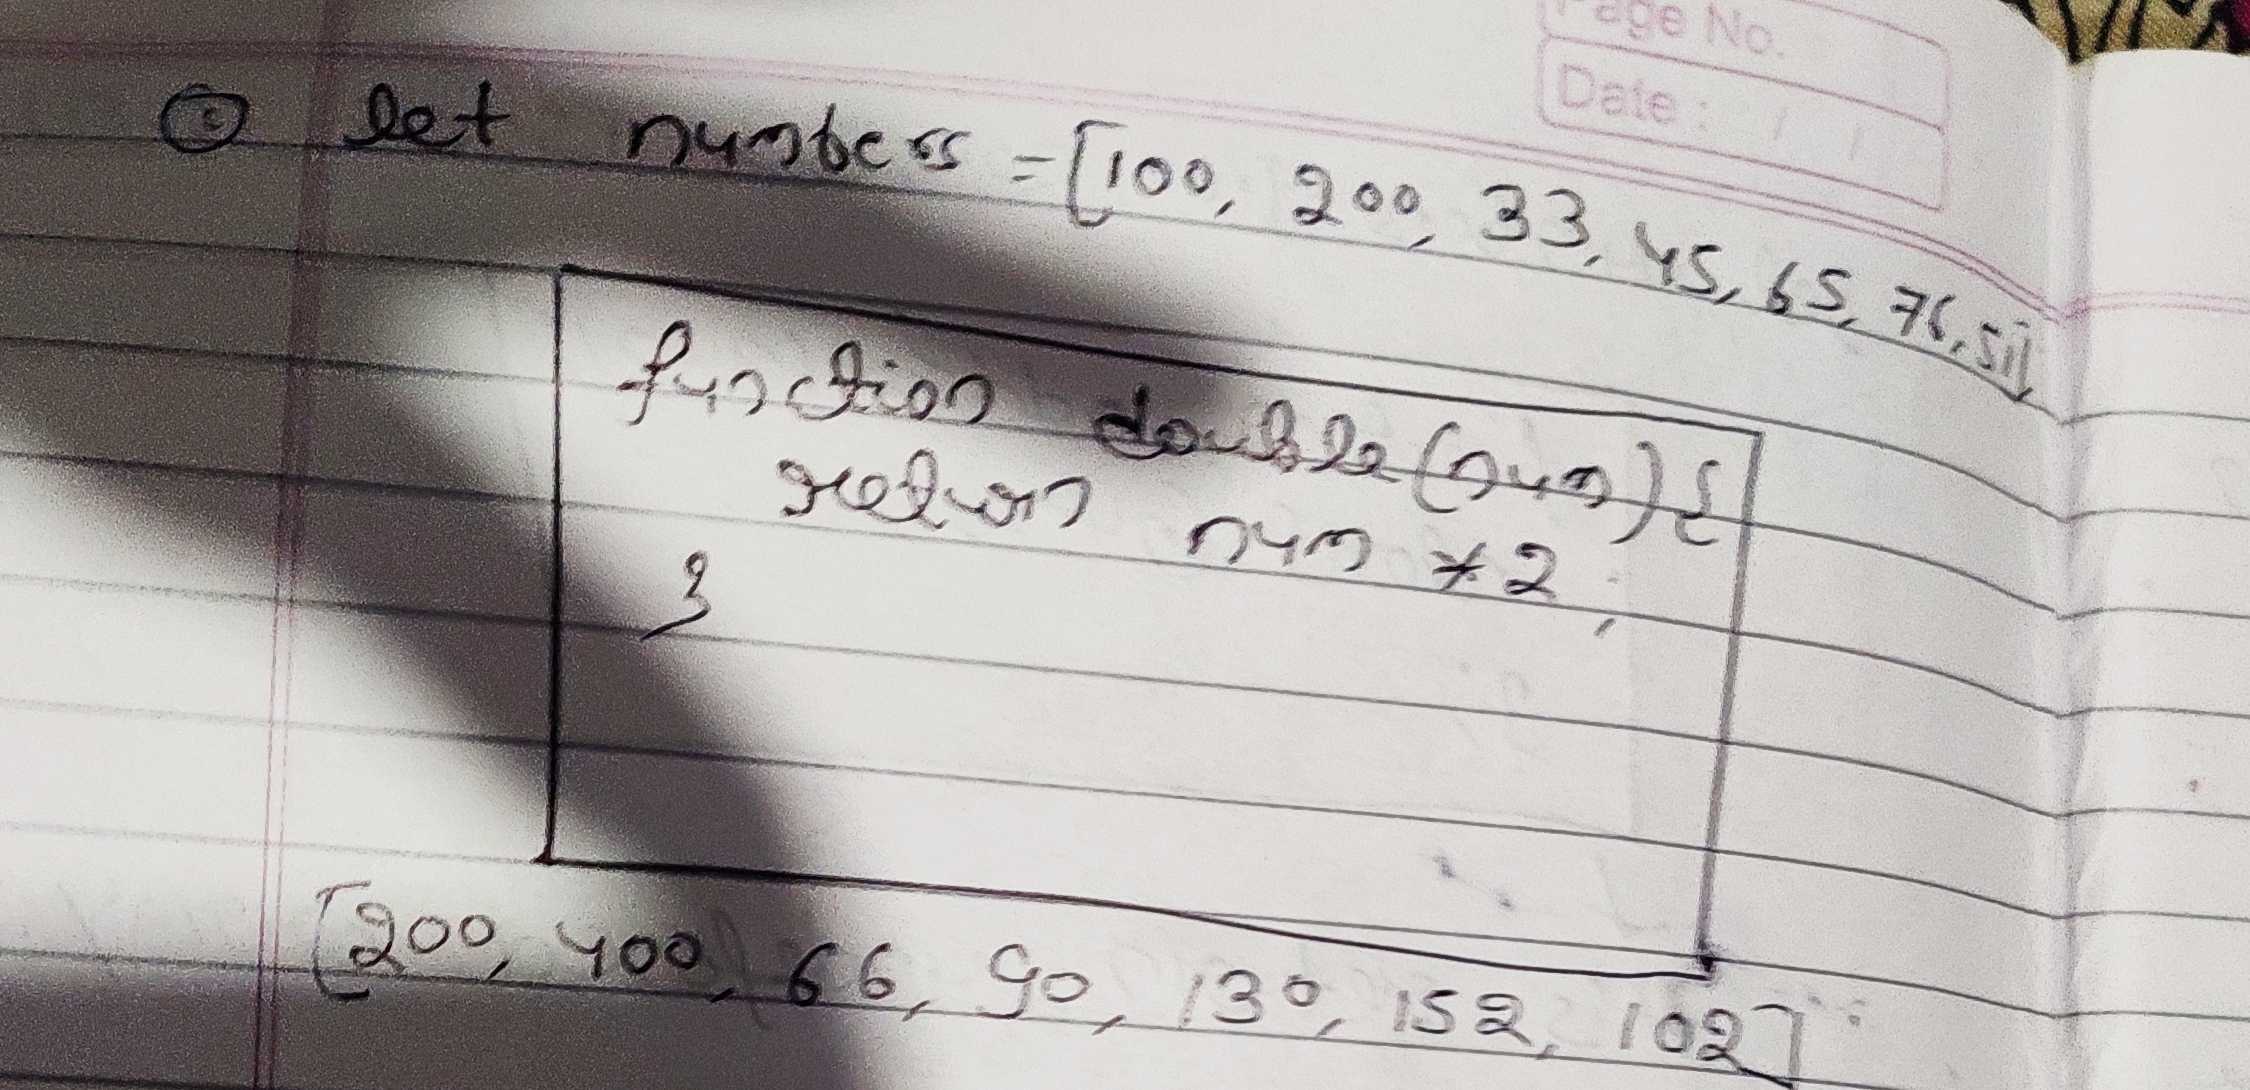 Page No.
Date : / /
let numbers = [100, 200, 33, 45, 65, 76, 51]
function double(num){
return num * 2;
}
[200, 400, 66, 90, 130, 152, 102]